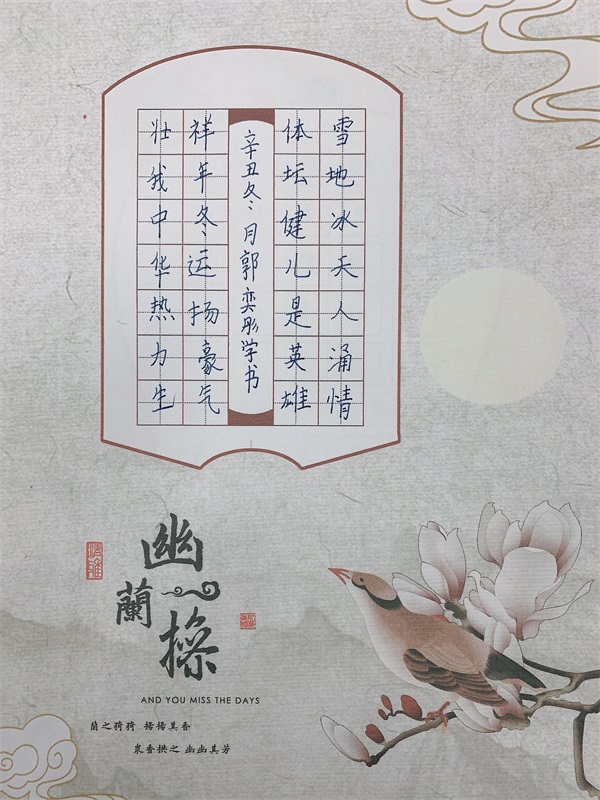 雪地冰天人涌情
体坛健儿是英雄
辛丑冬月郭奕彤学书
祥年冬运扬豪气
壮我中华热力生
幽蘭操
AND YOU MISS THE DAYS
蘭之猗猗 揚揚其香
衆香拱之 幽幽其芳